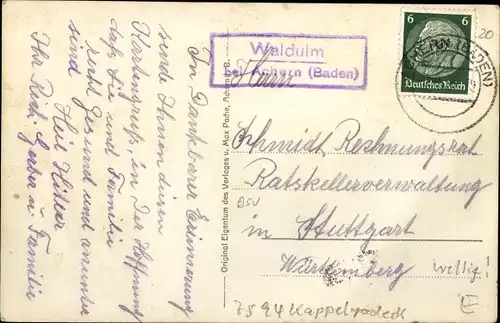 In Dankbarer Erinnerung
sende Ihnen diesen
Kartengruss, in Der Hoffnung
daß Sie und Familie
recht Gesund und munter
sind
Heil Hitler
Ihr Rich. u. Familie
Waldulm
bei Achern (Baden)
6 6
Deutsches Reich
ACHERN (BADEN)
20
Herrn
Schmidt, Rechnungsrat
Ratskellerverwaltung
in Stuttgart
Württemberg
BSV
willig!
7594 Kappelrodeck
E
Original Eigentum des Verlages v. Max Pache, Achern i. B.